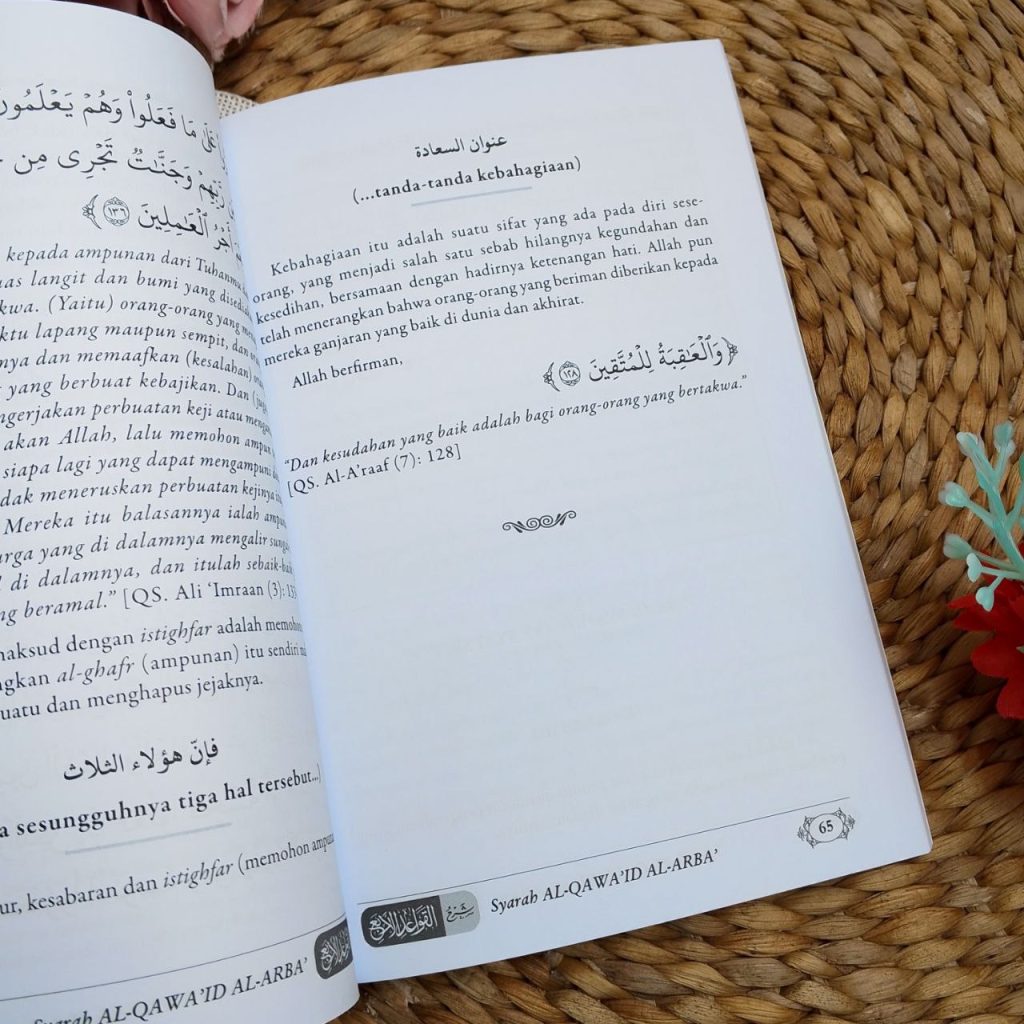 مَا فَعَلُوا۟ وَهُمْ يَعْلَمُونَ
وَجَنَّـٰتٌ تَجْرِى مِن
أَجْرُ ٱلْعَـٰمِلِينَ ﴿١٣٦﴾
kepada ampunan dari Tuhanmu
langit dan bumi yang
(Yaitu) orang-orang yang
lapang maupun sempit, dan
dan memaafkan (kesalahan)
yang berbuat kebajikan. Dan
perbuatan keji atau
akan Allah, lalu memohon
siapa lagi yang dapat
meneruskan perbuatan kejinya
Mereka itu balasannya ialah
yang di dalamnya mengalir
di dalamnya, dan itulah
beramal.” [QS. Ali ‘Imraan (3):
dengan istighfar adalah
al-ghafr (ampunan) itu sendiri
dan menghapus jejaknya.
فإنّ هؤلاء الثلاث
sesungguhnya tiga hal tersebut...)
kesabaran dan istighfar (memohon
Syarah AL-QAWA’ID AL-ARBA’
عنوان السعادة
(...tanda-tanda kebahagiaan)
Kebahagiaan itu adalah suatu sifat yang ada pada diri sese-
orang, yang menjadi salah satu sebab hilangnya kegundahan dan
kesedihan, bersamaan dengan hadirnya ketenangan hati. Allah pun
telah menerangkan bahwa orang-orang yang beriman diberikan kepada
mereka ganjaran yang baik di dunia dan akhirat.
Allah berfirman,
﴿وَٱلْعَـٰقِبَةُ لِلْمُتَّقِينَ ١٢٨﴾
“Dan kesudahan yang baik adalah bagi orang-orang yang bertakwa.”
[QS. Al-A’raaf (7): 128]
65
شرح القواعد الأربع
Syarah AL-QAWA’ID AL-ARBA’